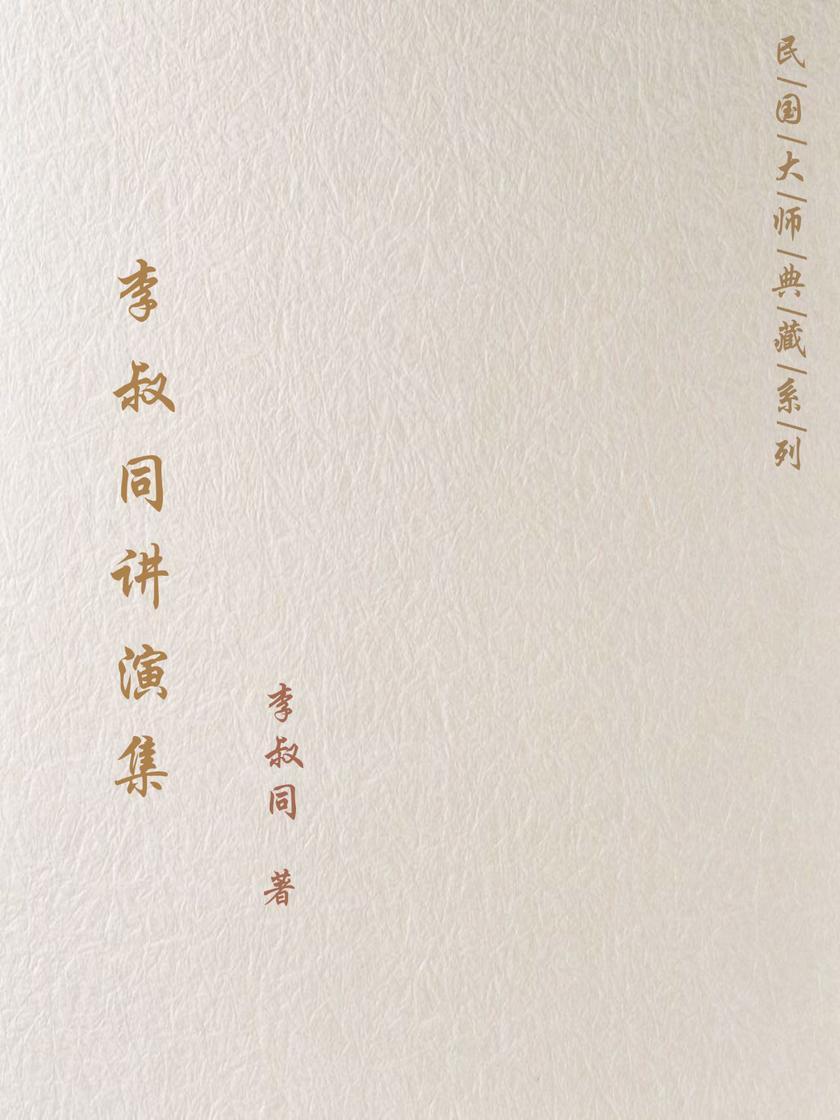 民/国/大/师/典/藏/系/列
李叔同讲演集
李叔同 著